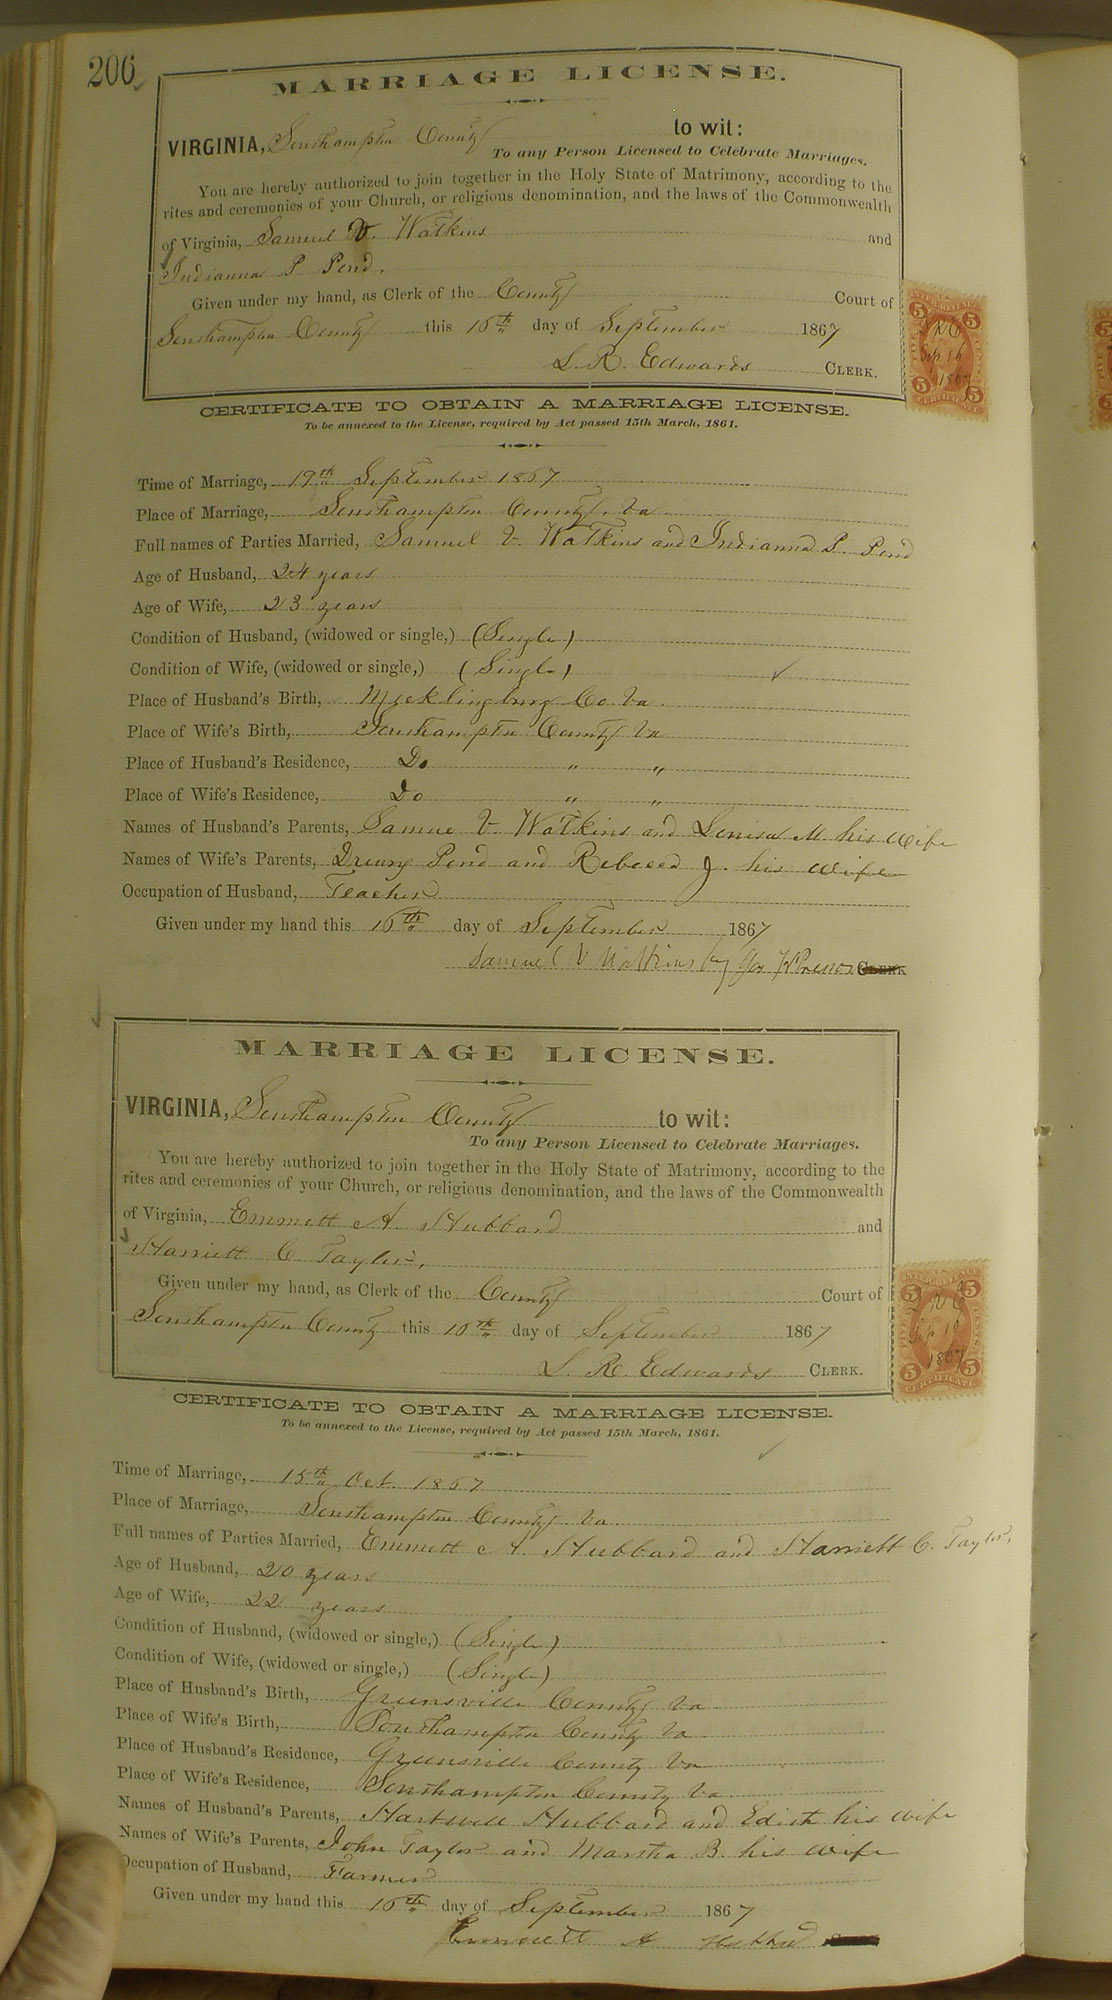 206
MARRIAGE LICENSE.
VIRGINIA, Southampton County to wit:
To any Person Licensed to Celebrate Marriages.
You are hereby authorized to join together in the Holy State of Matrimony, according to the
rites and ceremonies of your Church, or religious denomination, and the laws of the Commonwealth
of Virginia, Samuel V. Watkins and
Indianna P. Pond.
Given under my hand, as Clerk of the County Court of
Southampton County this 16th day of September 1867
L. R. Edwards CLERK.
5 5
LRE
Sep 16
1867
5 5
CERTIFICATE
CERTIFICATE TO OBTAIN A MARRIAGE LICENSE.
To be annexed to the License, required by Act passed 15th March, 1861.
Time of Marriage, 19th September 1867
Place of Marriage, Southampton County, Va.
Full names of Parties Married, Samuel V. Watkins and Indianna P. Pond
Age of Husband, 24 years
Age of Wife, 23 years
Condition of Husband, (widowed or single,) (Single)
Condition of Wife, (widowed or single,) (Single)
Place of Husband's Birth, Mecklingburg Co. Va.
Place of Wife's Birth, Southampton County Va
Place of Husband's Residence, Do " "
Place of Wife's Residence, Do " "
Names of Husband's Parents, Samue V. Watkins and Louisa M. his Wife
Names of Wife's Parents, Drewry Pond and Rebecca J. his wife
Occupation of Husband, Teacher
Given under my hand this 16th day of September 1867
Samuel V Watkins by CLERK
MARRIAGE LICENSE.
VIRGINIA, Southampton County to wit:
To any Person Licensed to Celebrate Marriages.
You are hereby authorized to join together in the Holy State of Matrimony, according to the
rites and ceremonies of your Church, or religious denomination, and the laws of the Commonwealth
of Virginia, Emmett A. Hubbard and
Harriett C. Taylor.
Given under my hand, as Clerk of the County Court of
Southampton County this 16th day of September 1867
L. R. Edwards CLERK.
5 5
LRE
Sep 16
1867
5 5
CERTIFICATE
CERTIFICATE TO OBTAIN A MARRIAGE LICENSE.
To be annexed to the License, required by Act passed 15th March, 1861.
Time of Marriage, 15th Oct. 1867
Place of Marriage, Southampton County Va.
Full names of Parties Married, Emmett A. Hubbard and Harriett C. Taylor,
Age of Husband, 20 years
Age of Wife, 22 years
Condition of Husband, (widowed or single,) (Single)
Condition of Wife, (widowed or single,) (Single)
Place of Husband's Birth, Greensville County Va
Place of Wife's Birth, Southampton County Va
Place of Husband's Residence, Greensville County Va
Place of Wife's Residence, Southampton County Va.
Names of Husband's Parents, Hartwell Hubbard and Edith his wife
Names of Wife's Parents, John Taylor and Martha B. his wife
Occupation of Husband, Farmer
Given under my hand this 16th day of September 1867
Emmett A Hubbard